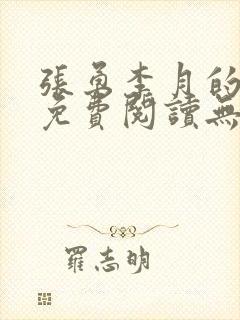 張勇李月的
免費閱讀無
羅志明